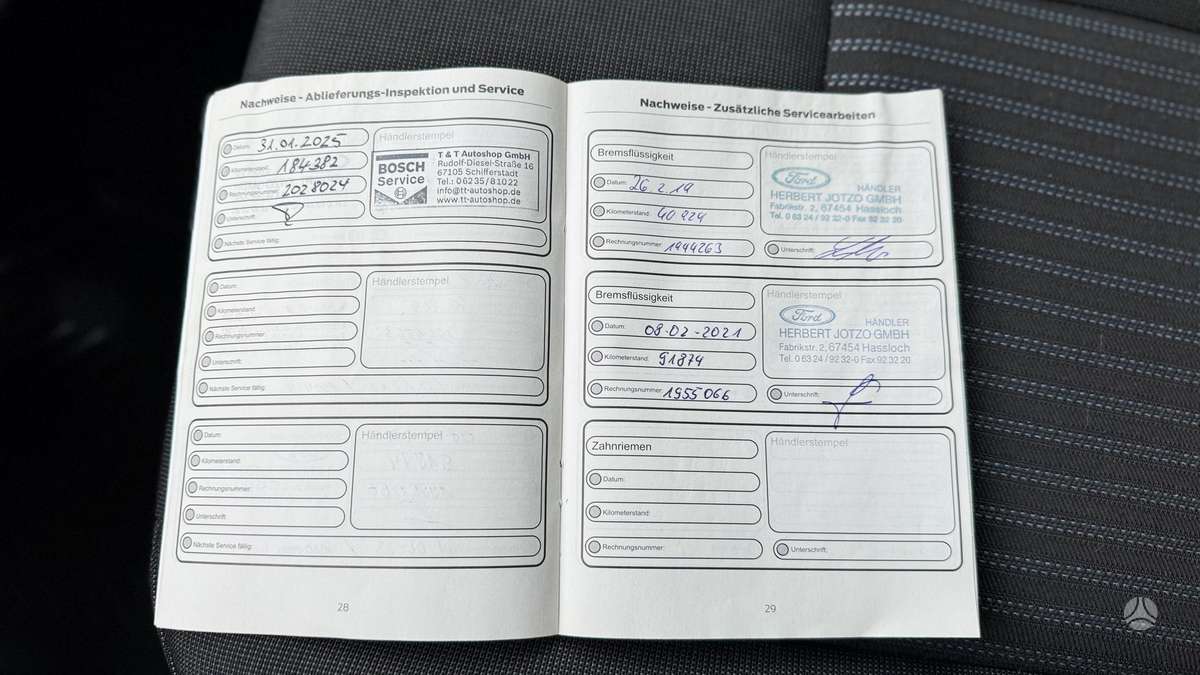 Nachweise - Ablieferungs-Inspektion und Service
Datum: 31.01.2025
Kilometerstand: 184382
Rechnungsnummer: 2028024
Unterschrift:
Nächste Service fällig:
Händlerstempel
BOSCH
Service
T & T Autoshop GmbH
Rudolf-Diesel-Straße 16
67105 Schifferstadt
Tel.: 06235/81022
info@tt-autoshop.de
www.tt-autoshop.de
Datum:
Kilometerstand:
Rechnungsnummer:
Unterschrift:
Nächste Service fällig:
Händlerstempel
Datum:
Kilometerstand:
Rechnungsnummer:
Unterschrift:
Nächste Service fällig:
Händlerstempel
28
Nachweise - Zusätzliche Servicearbeiten
Bremsflüssigkeit
Datum: 26 2.19
Kilometerstand: 40 224
Rechnungsnummer: 1944263
Händlerstempel
Ford
HÄNDLER
HERBERT JOTZO GMBH
Fabrikstr. 2, 67454 Hassloch
Tel. 0 63 24 / 92 32-0 Fax 92 32 20
Unterschrift:
Bremsflüssigkeit
Datum: 08-02-2021
Kilometerstand: 91874
Rechnungsnummer: 1955066
Händlerstempel
Ford
HÄNDLER
HERBERT JOTZO GMBH
Fabrikstr. 2, 67454 Hassloch
Tel. 0 63 24 / 92 32-0 Fax 92 32 20
Unterschrift:
Zahnriemen
Datum:
Kilometerstand:
Rechnungsnummer:
Händlerstempel
Unterschrift:
29